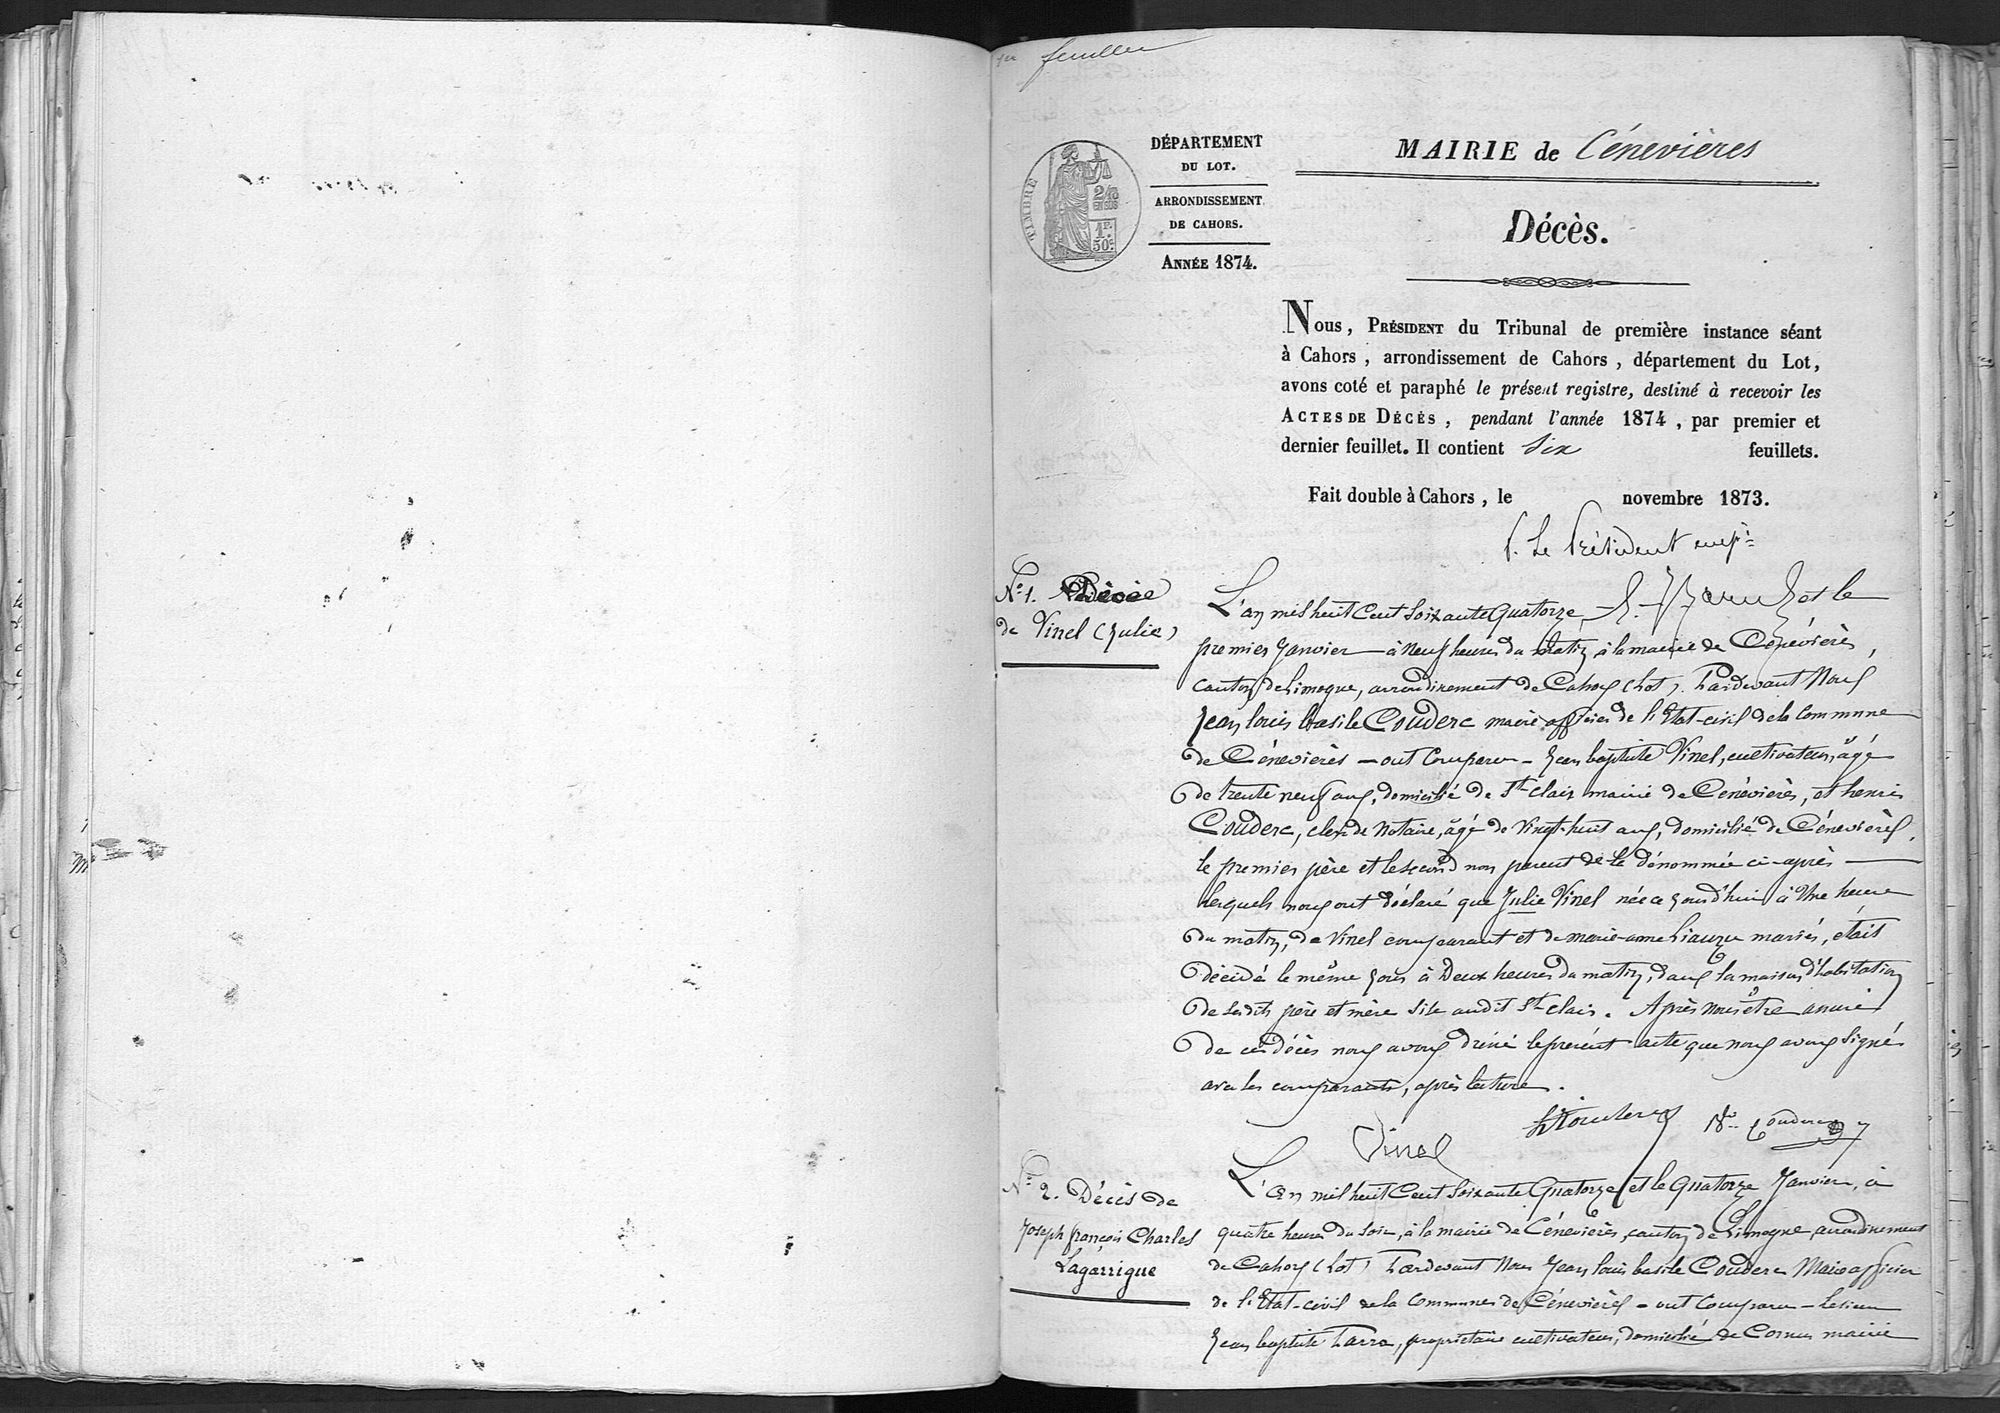 1er feuillet
TIMBRE
2/10
EN SUS
1F.
50c
DÉPARTEMENT
DU LOT.
ARRONDISSEMENT
DE CAHORS.
ANNÉE 1874.
MAIRIE de Cénevières
Décès.
Nous, PRÉSIDENT du Tribunal de première instance séant
à Cahors, arrondissement de Cahors, département du Lot,
avons coté et paraphé le présent registre, destiné à recevoir les
ACTES DE DÉCÈS, pendant l'année 1874, par premier et
dernier feuillet. Il contient six feuillets.
Fait double à Cahors, le novembre 1873.
P. Le Président emp.
No 1. Décès
de Vinel (Julie)
L'an mil huit Cent soixante Quatorze, et le
premier Janvier à Neuf heures du Matin à la mairie de Cénévières,
canton de Limogne, arrondissement de Cahors (Lot). Pardevant Nous
Jean louis basile Couderc maire officier de l'Etat-civil de la Commune
de Cénevières – ont Comparu – Jean baptiste Vinel, cultivateur, âgé
de trente neuf ans, domicilié de St-clair mairie de Cénévières, et henri
Couderc, clerc de Notaire, âgé de Vingt-huit ans, domicilié de Cénevières,
le premier père et le second non parent de la dénommée ci-après
lesquels nous ont déclaré que Julie Vinel née ce jourd'hui à Une heure
du matin, de Vinel comparant et de marie-anne Liauzu mariés, était
décédée le même jour à Deux heures du matin, dans la maison d'habitation
de sesdits père et mère sise audit St-clair. Après Nous être assuré
de ce décès nous avons dressé le présent acte que nous avons signé
avec les comparants, après lecture.
Vinel
H Couderc
Couderc
No 2. Décès de
Joseph françois Charles
Lagarrigue
L'an mil huit Cent Soixante Quatorze et le Quatorze Janvier, à
quatre heures du soir, à la mairie de Cénevières, canton de Limogne, arrondissement
de Cahors (Lot) Pardevant Nous Jean louis basile Couderc Maire officier
de l'Etat-civil de la Commune de Cénevières – ont Comparu – Le sieur
Jean baptiste Parra, propriétaire cultivateur, domicilié de Cornus mairie